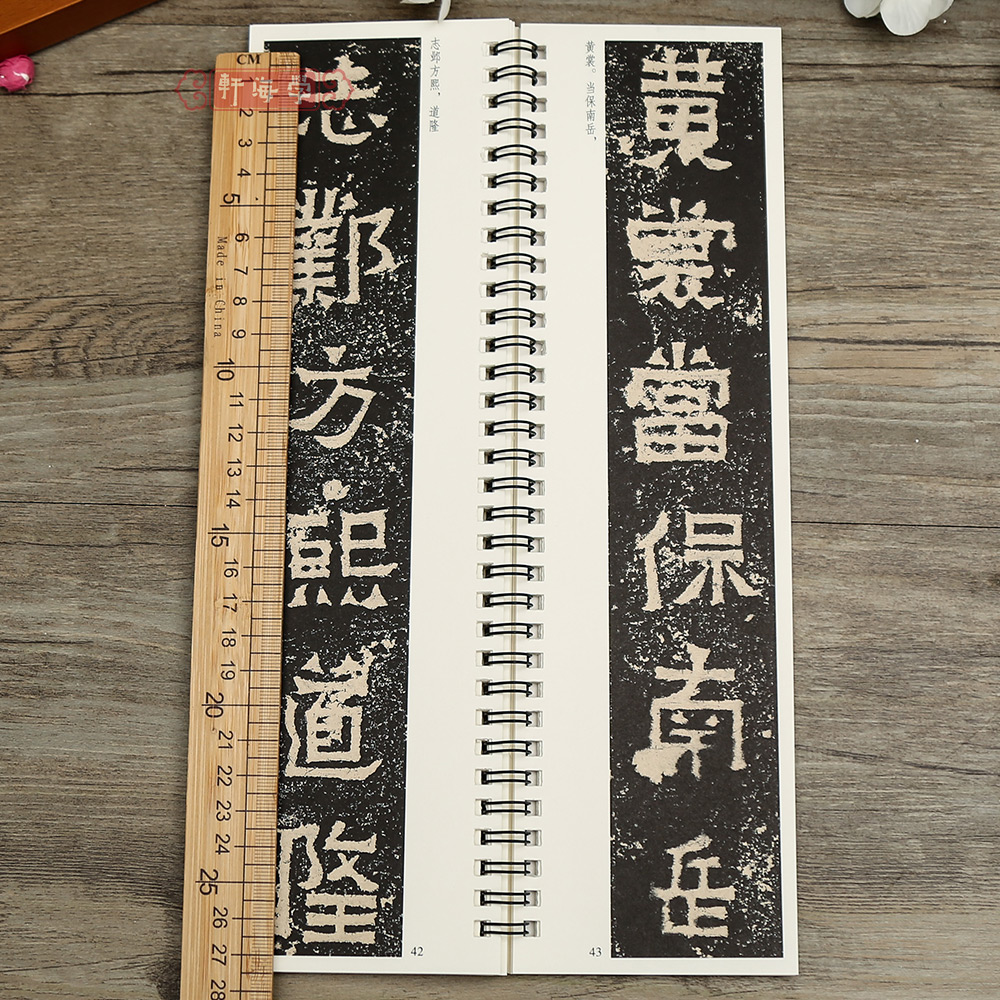 軒海堂
CM
2
3
4
5
6
7
8
9
10
11
12
13
14
15
16
17
18
19
20
21
22
23
24
25
26
27
28
Made in China
志鄴方熙道隆
志邺方熙，道隆
42
黄裳。当保南岳，
黃裳當保南岳
43